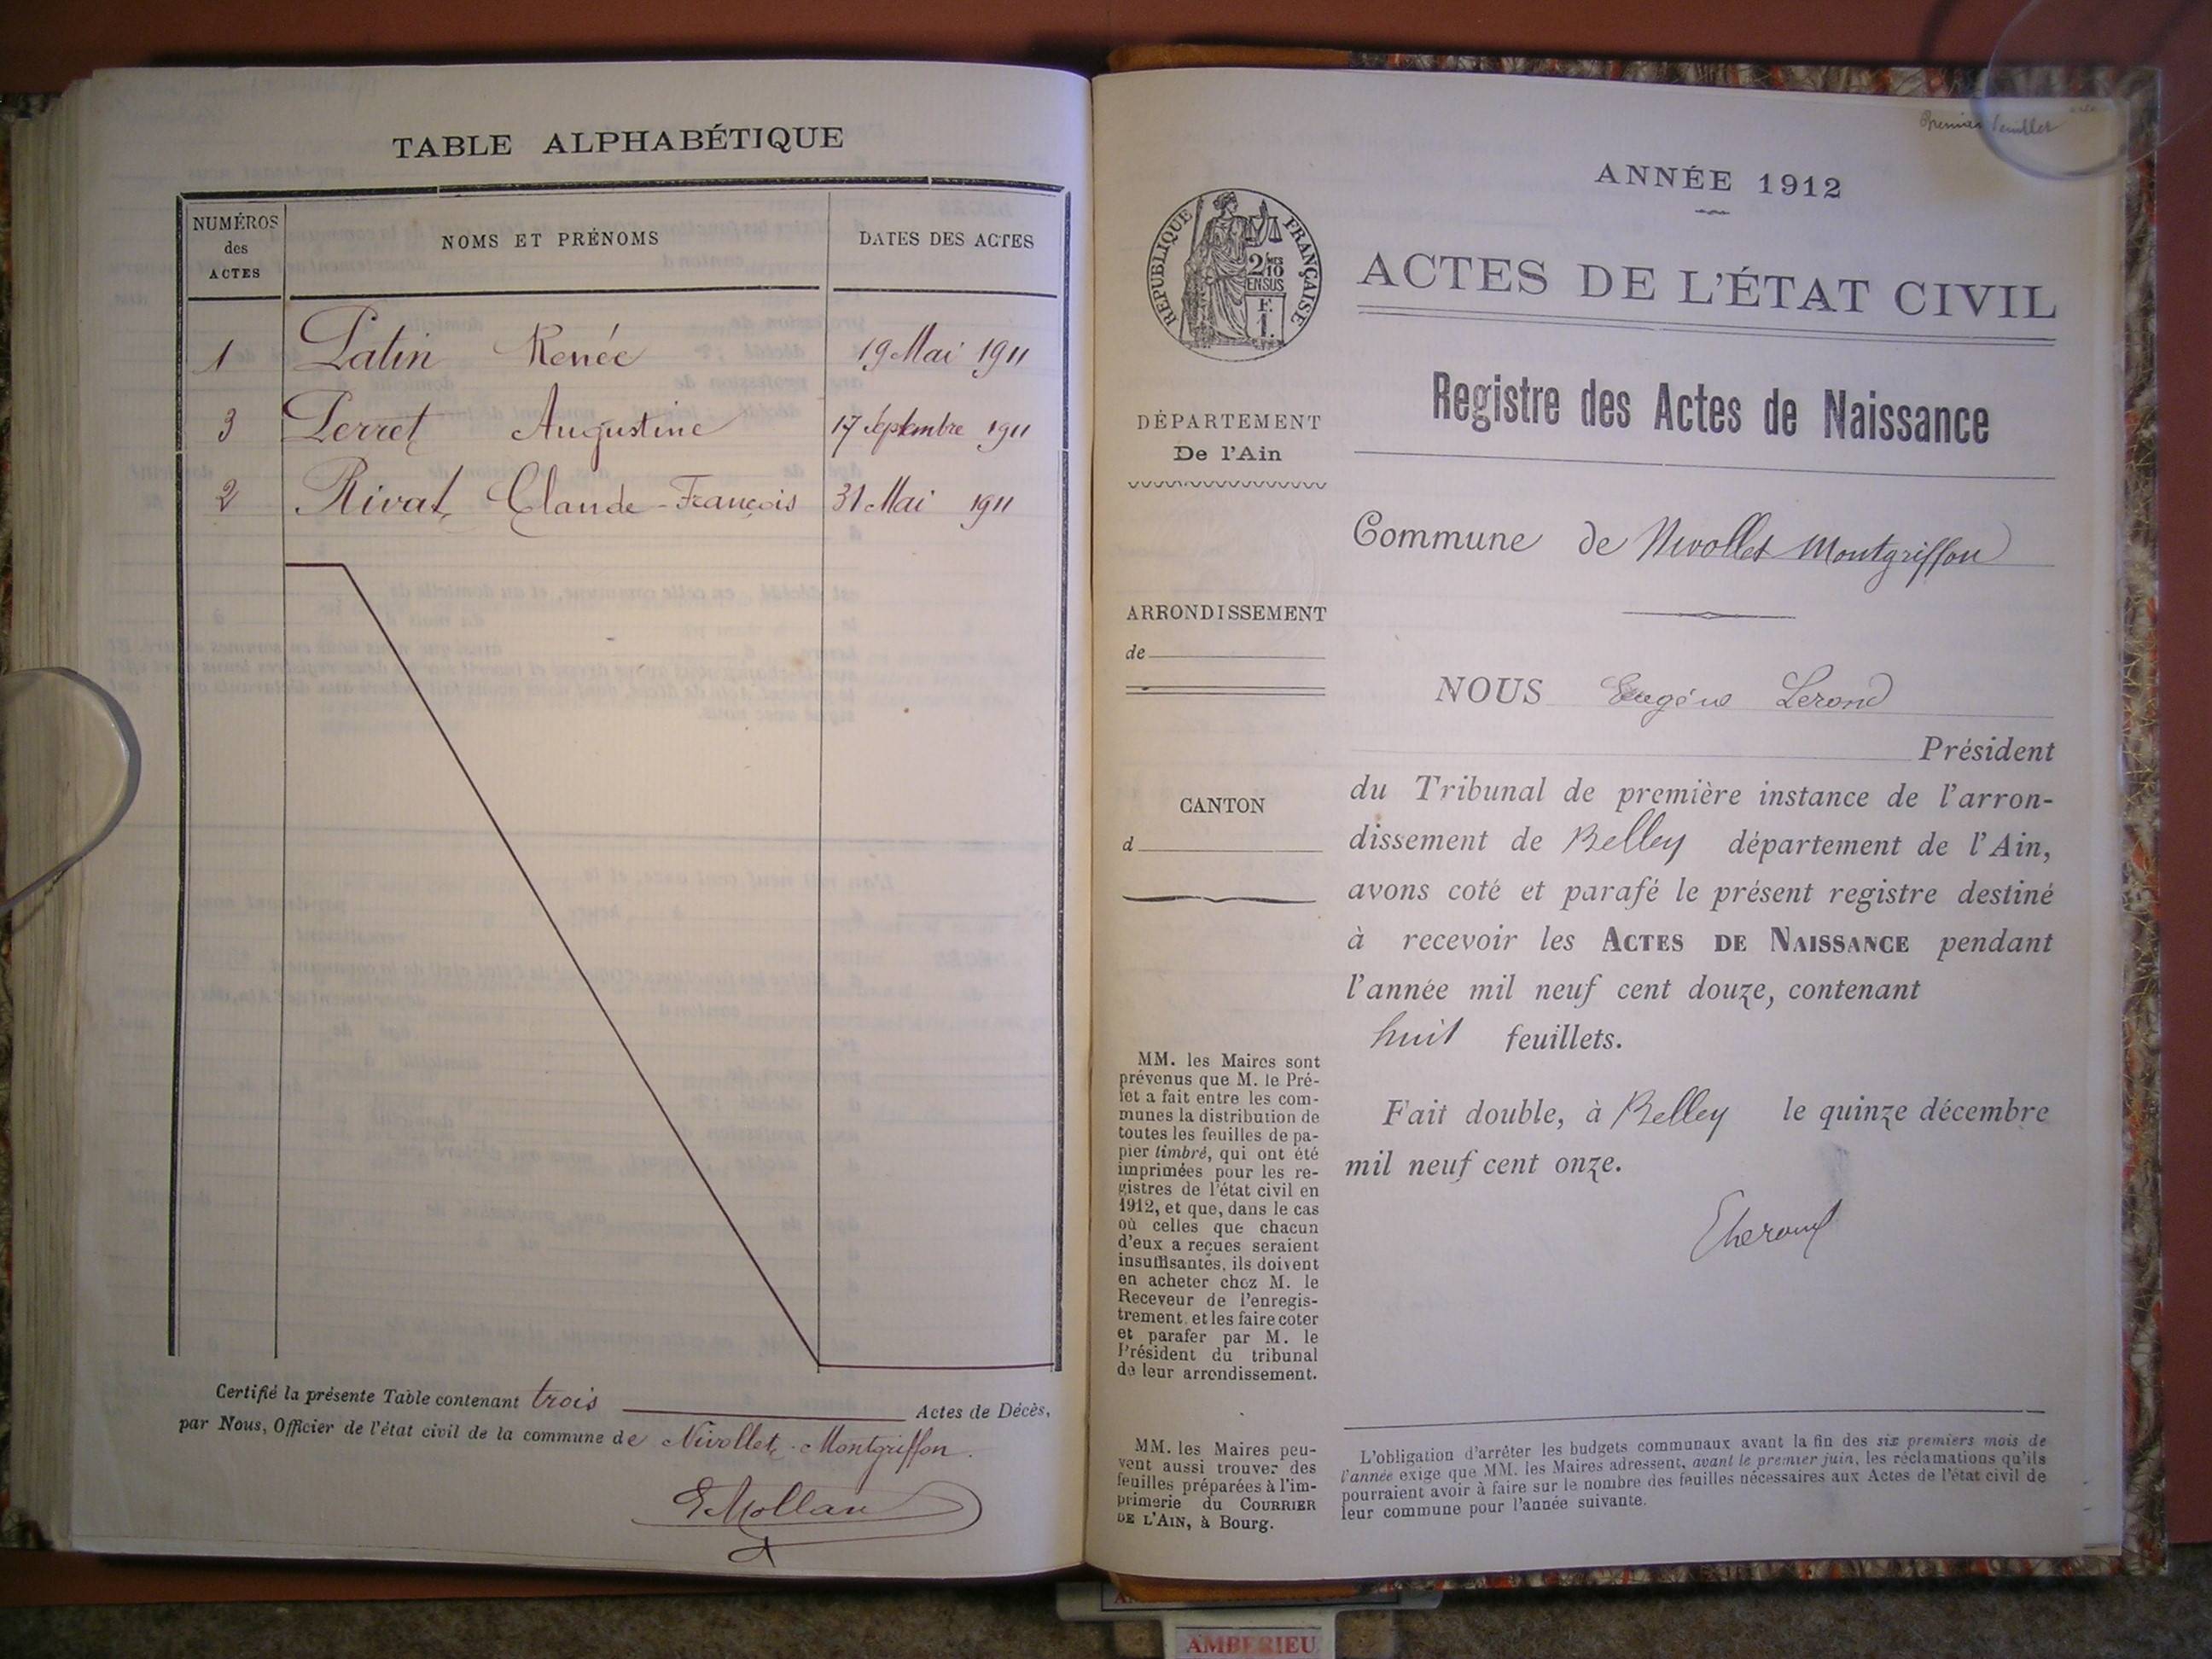 TABLE ALPHABÉTIQUE
NUMÉROS
des
ACTES
NOMS ET PRÉNOMS
DATES DES ACTES
1 Patin Renée 19 Mai 1911
3 Perret Augustine 17 Septembre 1911
2 Rivat Claude-François 31 Mai 1911
Certifié la présente Table contenant trois Actes de Décès,
par Nous, Officier de l'état civil de la commune de Nivollet-Montgriffon.
Premier feuillet
ANNÉE 1912
RÉPUBLIQUE FRANÇAISE
2/10
EN SUS
F.
1.
ACTES DE L'ÉTAT CIVIL
Registre des Actes de Naissance
DÉPARTEMENT
De l'Ain
Commune de Nivollet Montgriffon
ARRONDISSEMENT
de
NOUS Eugène Lerond
Président
CANTON
d
du Tribunal de première instance de l'arron-
dissement de Belley département de l'Ain,
avons coté et parafé le présent registre destiné
à recevoir les ACTES DE NAISSANCE pendant
l'année mil neuf cent douze, contenant
huit feuillets.
Fait double, à Belley le quinze décembre
mil neuf cent onze.
MM. les Maires sont
prévenus que M. le Pré-
fet a fait entre les com-
munes la distribution de
toutes les feuilles de pa-
pier timbré, qui ont été
imprimées pour les re-
gistres de l'état civil en
1912, et que, dans le cas
où celles que chacun
d'eux a reçues seraient
insuffisantes, ils doivent
en acheter chez M. le
Receveur de l'enregis-
trement, et les faire coter
et parafer par M. le
Président du tribunal
de leur arrondissement.
MM. les Maires peu-
vent aussi trouver des
feuilles préparées à l'im-
primerie du COURRIER
DE L'AIN, à Bourg.
L'obligation d'arrêter les budgets communaux avant la fin des six premiers mois de
l'année exige que MM. les Maires adressent, avant le premier juin, les réclamations qu'ils
pourraient avoir à faire sur le nombre des feuilles nécessaires aux Actes de l'état civil de
leur commune pour l'année suivante.
AMBERIEU